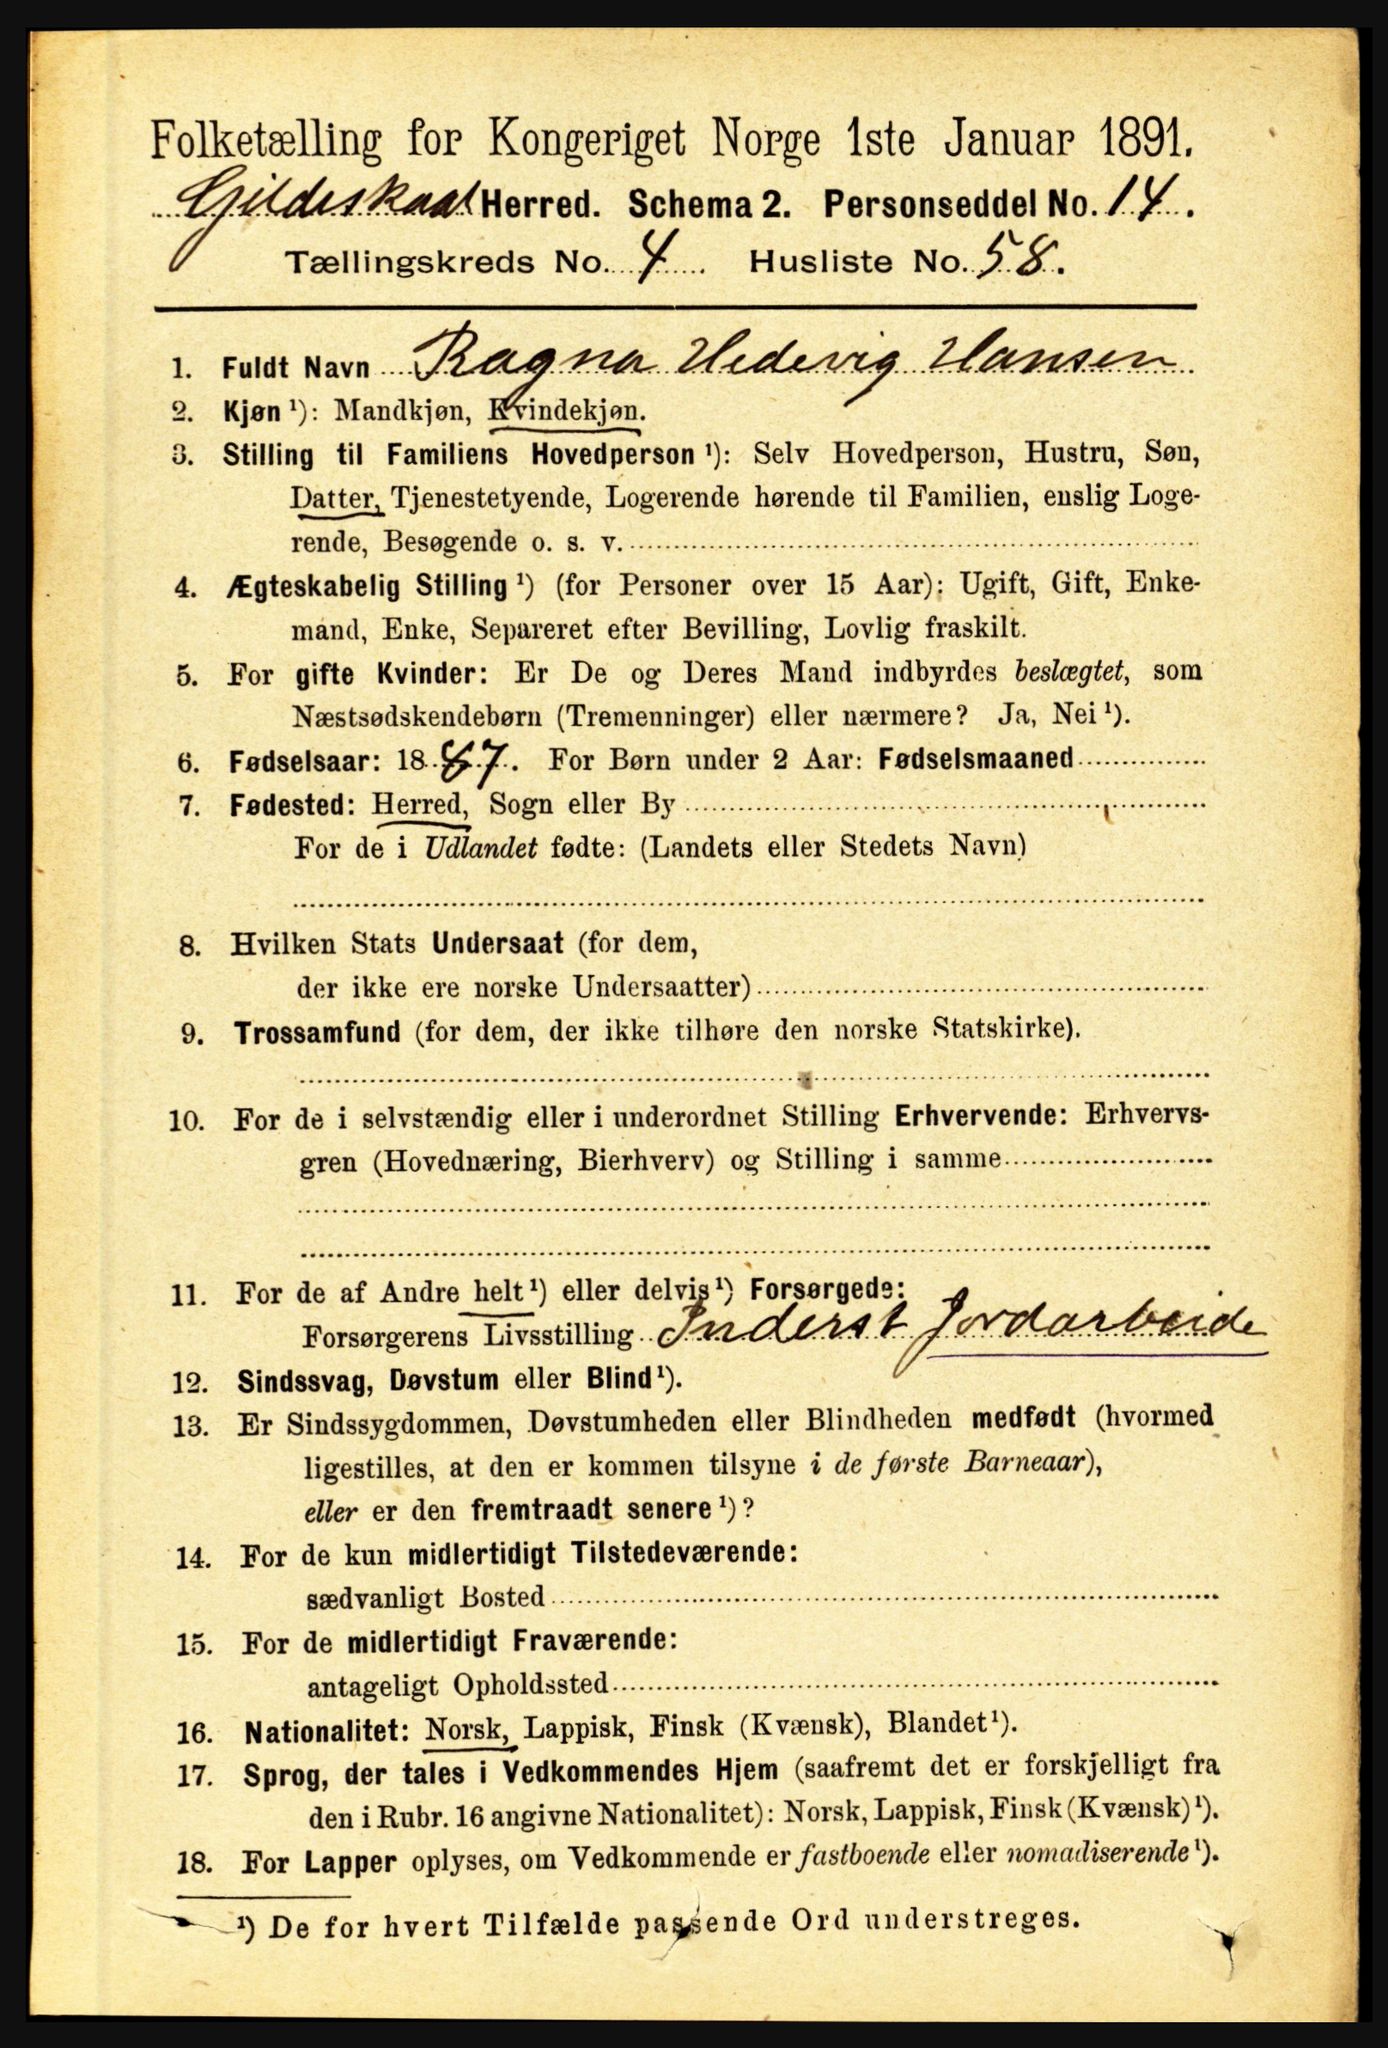 Folketælling for Kongeriget Norge 1ste Januar 1891.
Gildeskaal Herred. Schema 2. Personseddel No. 14.
Tællingskreds No. 4 Husliste No. 58.
1. Fuldt Navn Ragna Hedevig Hansen
2. Kjøn ¹): Mandkjøn, Kvindekjøn.
3. Stilling til Familiens Hovedperson ¹): Selv Hovedperson, Hustru, Søn,
Datter, Tjenestetyende, Logerende hørende til Familien, enslig Loge-
rende, Besøgende o. s. v.
4. Ægteskabelig Stilling ¹) (for Personer over 15 Aar): Ugift, Gift, Enke-
mand, Enke, Separeret efter Bevilling, Lovlig fraskilt.
5. For gifte Kvinder: Er De og Deres Mand indbyrdes beslægtet, som
Næstsødskendebørn (Tremenninger) eller nærmere? Ja, Nei ¹).
6. Fødselsaar: 1887. For Børn under 2 Aar: Fødselsmaaned
7. Fødested: Herred, Sogn eller By
For de i Udlandet fødte: (Landets eller Stedets Navn)
8. Hvilken Stats Undersaat (for dem,
der ikke ere norske Undersaatter)
9. Trossamfund (for dem, der ikke tilhøre den norske Statskirke).
10. For de i selvstændig eller i underordnet Stilling Erhvervende: Erhvervs-
gren (Hovednæring, Bierhverv) og Stilling i samme
11. For de af Andre helt ¹) eller delvis ¹) Forsørgede:
Forsørgerens Livsstilling Inderst Jordarbeide
12. Sindssvag, Døvstum eller Blind ¹).
13. Er Sindssygdommen, Døvstumheden eller Blindheden medfødt (hvormed
ligestilles, at den er kommen tilsyne i de første Barneaar),
eller er den fremtraadt senere ¹)?
14. For de kun midlertidigt Tilstedeværende:
sædvanligt Bosted
15. For de midlertidigt Fraværende:
antageligt Opholdssted
16. Nationalitet: Norsk, Lappisk, Finsk (Kvænsk), Blandet ¹).
17. Sprog, der tales i Vedkommendes Hjem (saafremt det er forskjelligt fra
den i Rubr. 16 angivne Nationalitet): Norsk, Lappisk, Finsk (Kvænsk) ¹).
18. For Lapper oplyses, om Vedkommende er fastboende eller nomadiserende ¹).
¹) De for hvert Tilfælde passende Ord understreges.